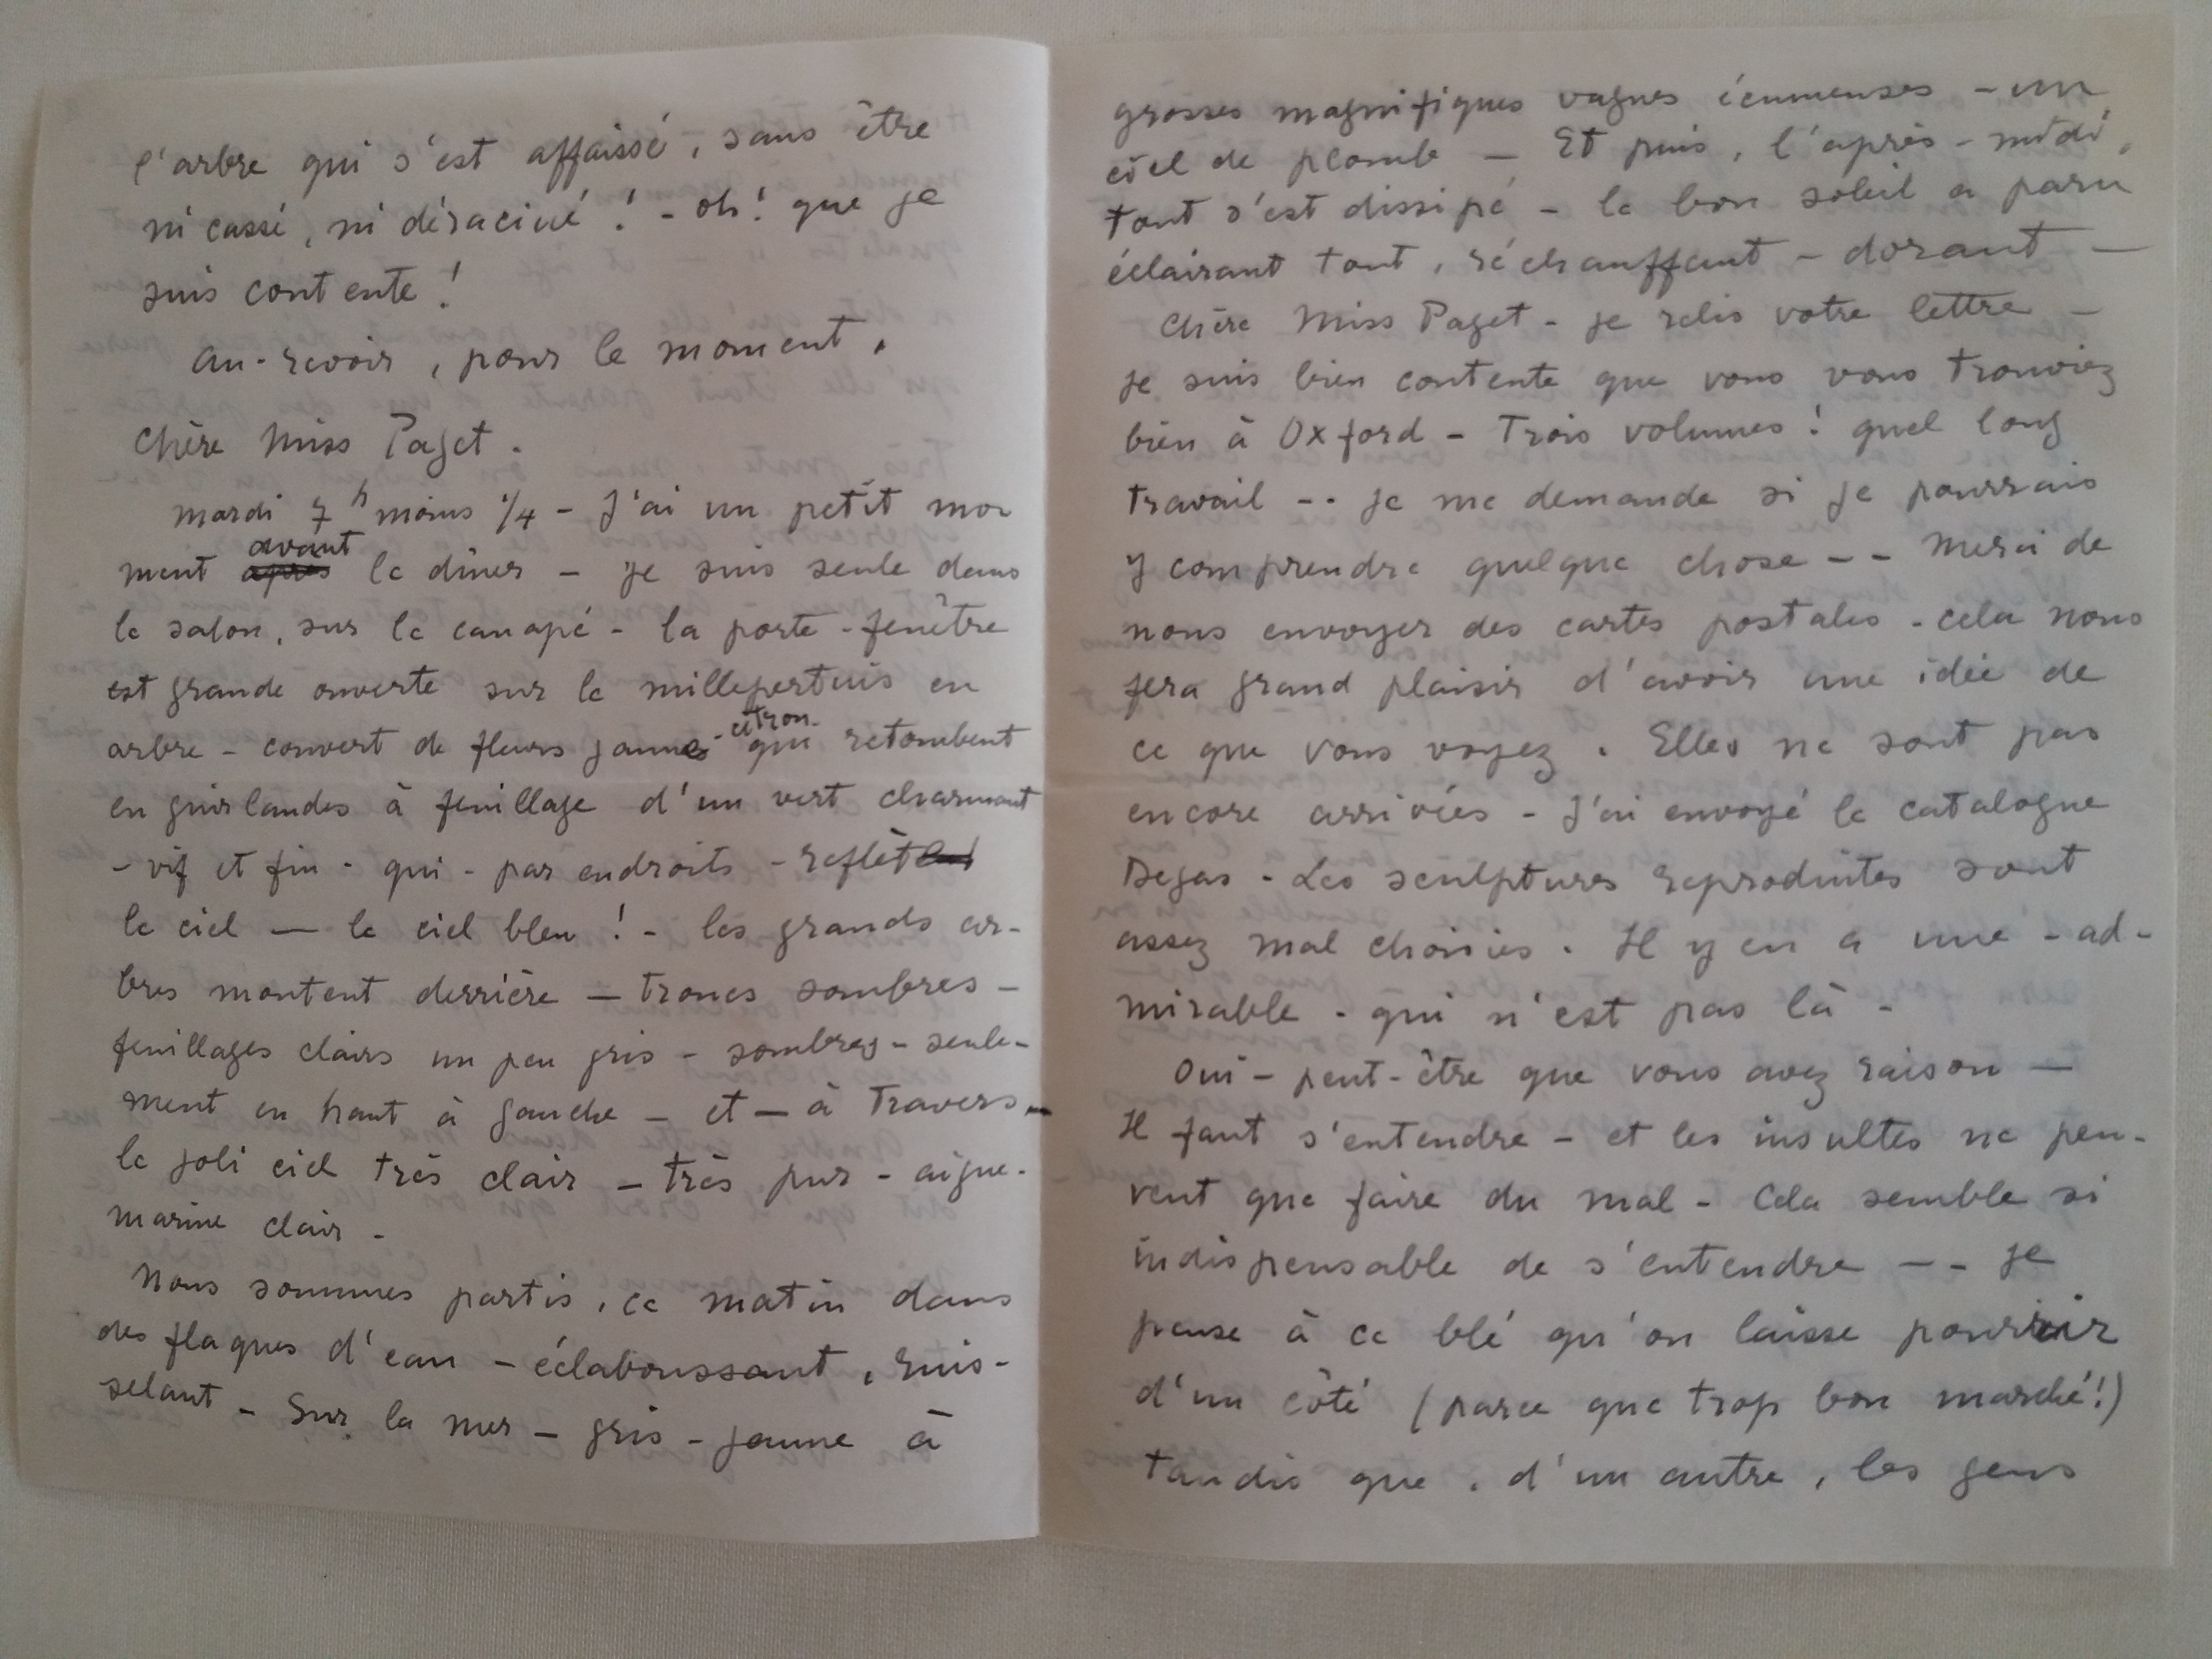 l'arbre qui s'est affaissé, sans être
ni cassé, ni déraciné ! - oh ! que je
suis contente !
au-revoir, pour le moment,
Chère Miss Paget.
mardi 7h moins 1/4 - J'ai un petit mo
ment après avant le dîner - je suis seule dans
le salon, sur le canapé - la porte-fenêtre
est grande ouverte sur le millepertuis en
arbre - couvert de fleurs jaunes-citron - qui retombent
en guirlandes à feuillage d'un vert charmant
- vif et fin - qui - par endroits - reflèt
le ciel — le ciel bleu ! - les grands ar-
bres montent derrière — troncs sombres -
feuillages clairs un peu gris - sombres - seule-
ment en haut à gauche - et — à travers -
le joli ciel très clair - très pur - aigue-
marine clair -
Nous sommes partis, ce matin dans
des flaques d'eau - éclaboussant, ruis-
selant - Sur la mer - gris-jaune à
grosses magnifiques vagues écumeuses - un
ciel de plomb — Et puis, l'après-midi,
tout s'est dissipé - le bon soleil a paru
éclairant tout, réchauffant - dorant —
Chère Miss Paget - je relis votre lettre -
je suis bien contente que vous vous trouviez
bien à Oxford - Trois volumes ! quel long
travail -- je me demande si je pourrais
y comprendre quelque chose -- Merci de
nous envoyer des cartes postales - cela nous
fera grand plaisir d'avoir une idée de
ce que vous voyez. Elles ne sont pas
encore arrivées - J'ai envoyé le catalogue
Degas - Les sculptures reproduites sont
assez mal choisies. Il y en a une - ad-
mirable - qui n'est pas là -
Oui - peut-être que vous avez raison —
Il faut s'entendre - et les insultes ne peu-
vent que faire du mal - Cela semble si
indispensable de s'entendre -- je
pense à ce blé qu'on laisse pourrir
d'un côté (parce que trop bon marché !)
tandis que, d'un autre, les gens